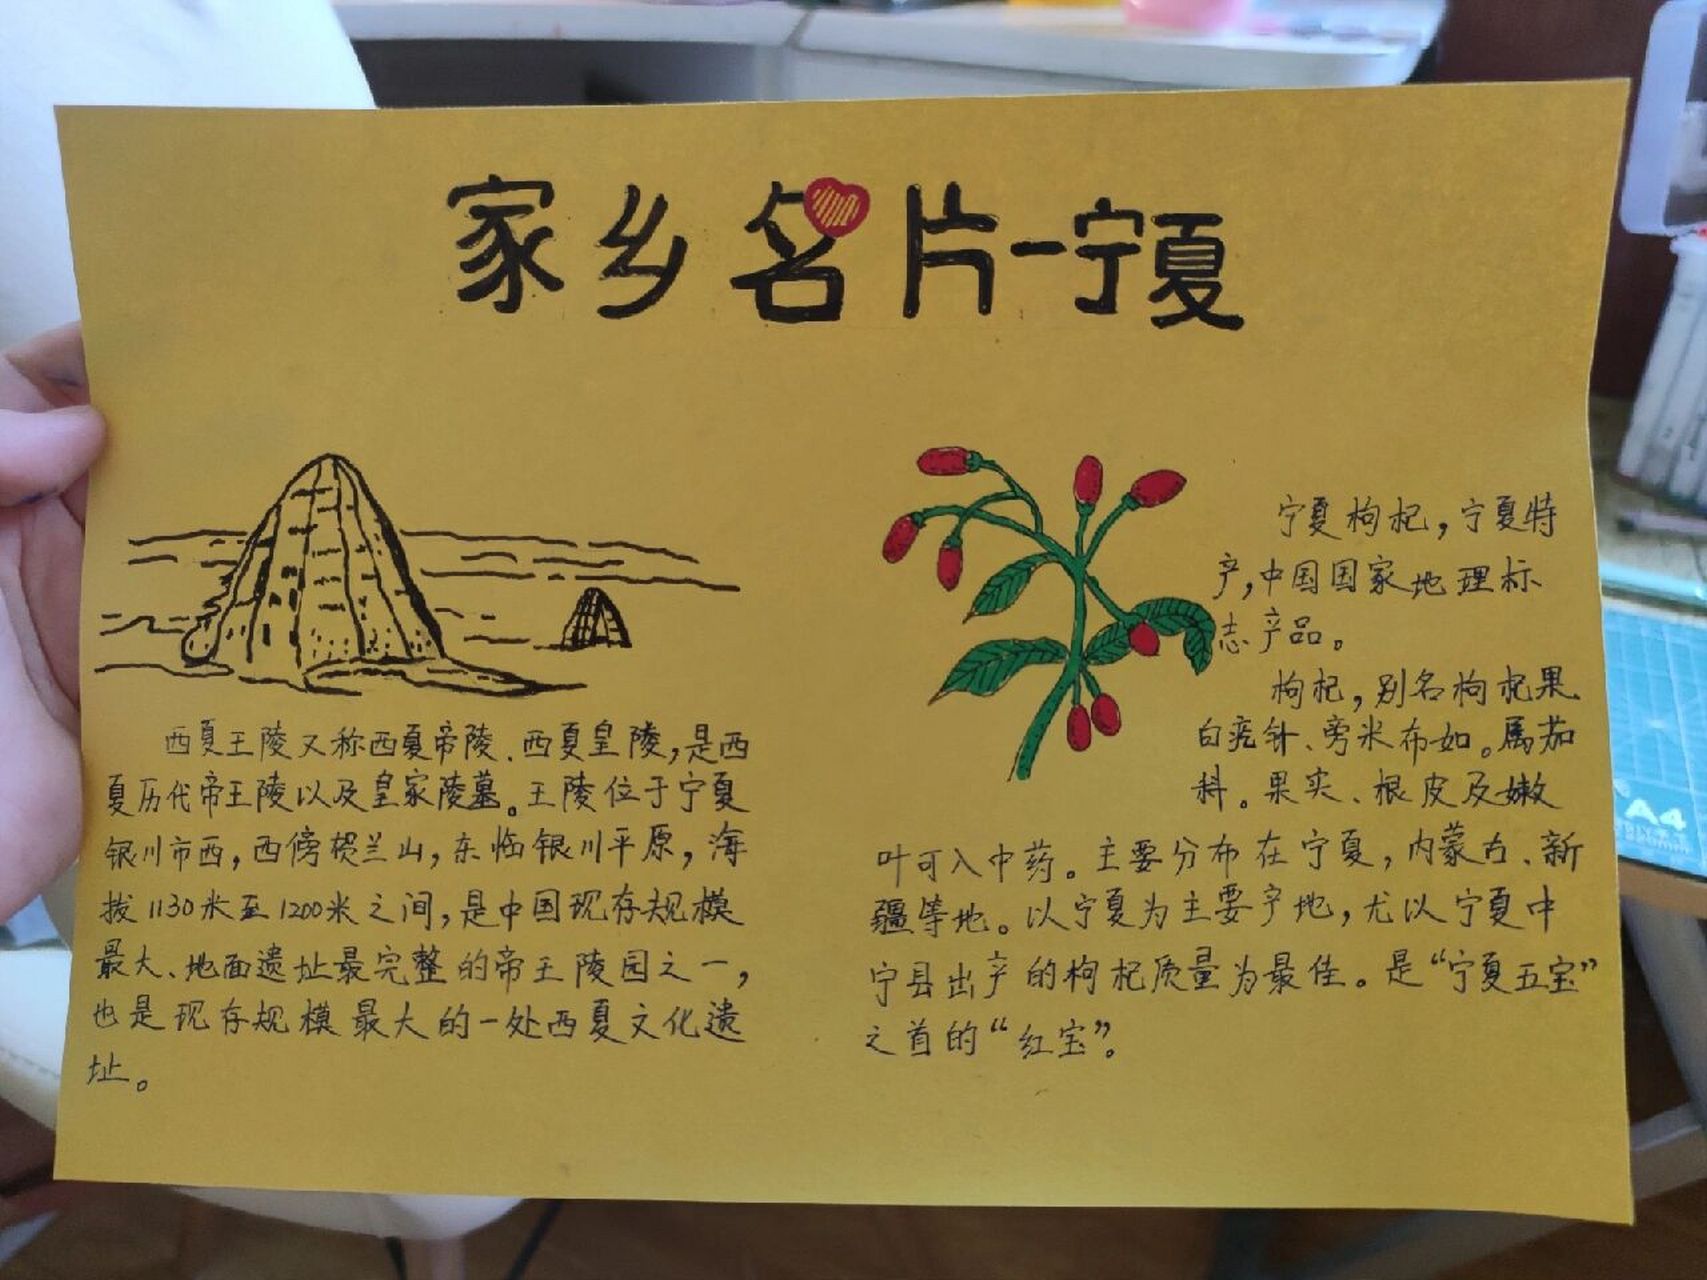 家乡名片-宁夏
西夏王陵又称西夏帝陵、西夏皇陵,是西
夏历代帝王陵以及皇家陵墓。王陵位于宁夏
银川市西,西傍贺兰山,东临银川平原,海
拔1130米至1200米之间,是中国现存规模
最大、地面遗址最完整的帝王陵园之一,
也是现存规模最大的一处西夏文化遗
址。
宁夏枸杞,宁夏特
产,中国国家地理标
志产品。
枸杞,别名枸杞果
白疙针、旁米布如。属茄
科。果实、根皮及嫩
叶可入中药。主要分布在宁夏,内蒙古、新
疆等地。以宁夏为主要产地,尤以宁夏中
宁县出产的枸杞质量为最佳。是“宁夏五宝”
之首的“红宝”。
A4